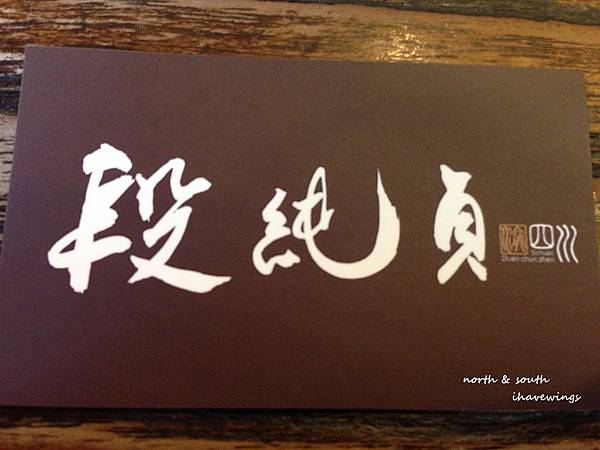 段純貞
渝 四川
Sichuan
Duan chun zhen
north & south
ihavewings